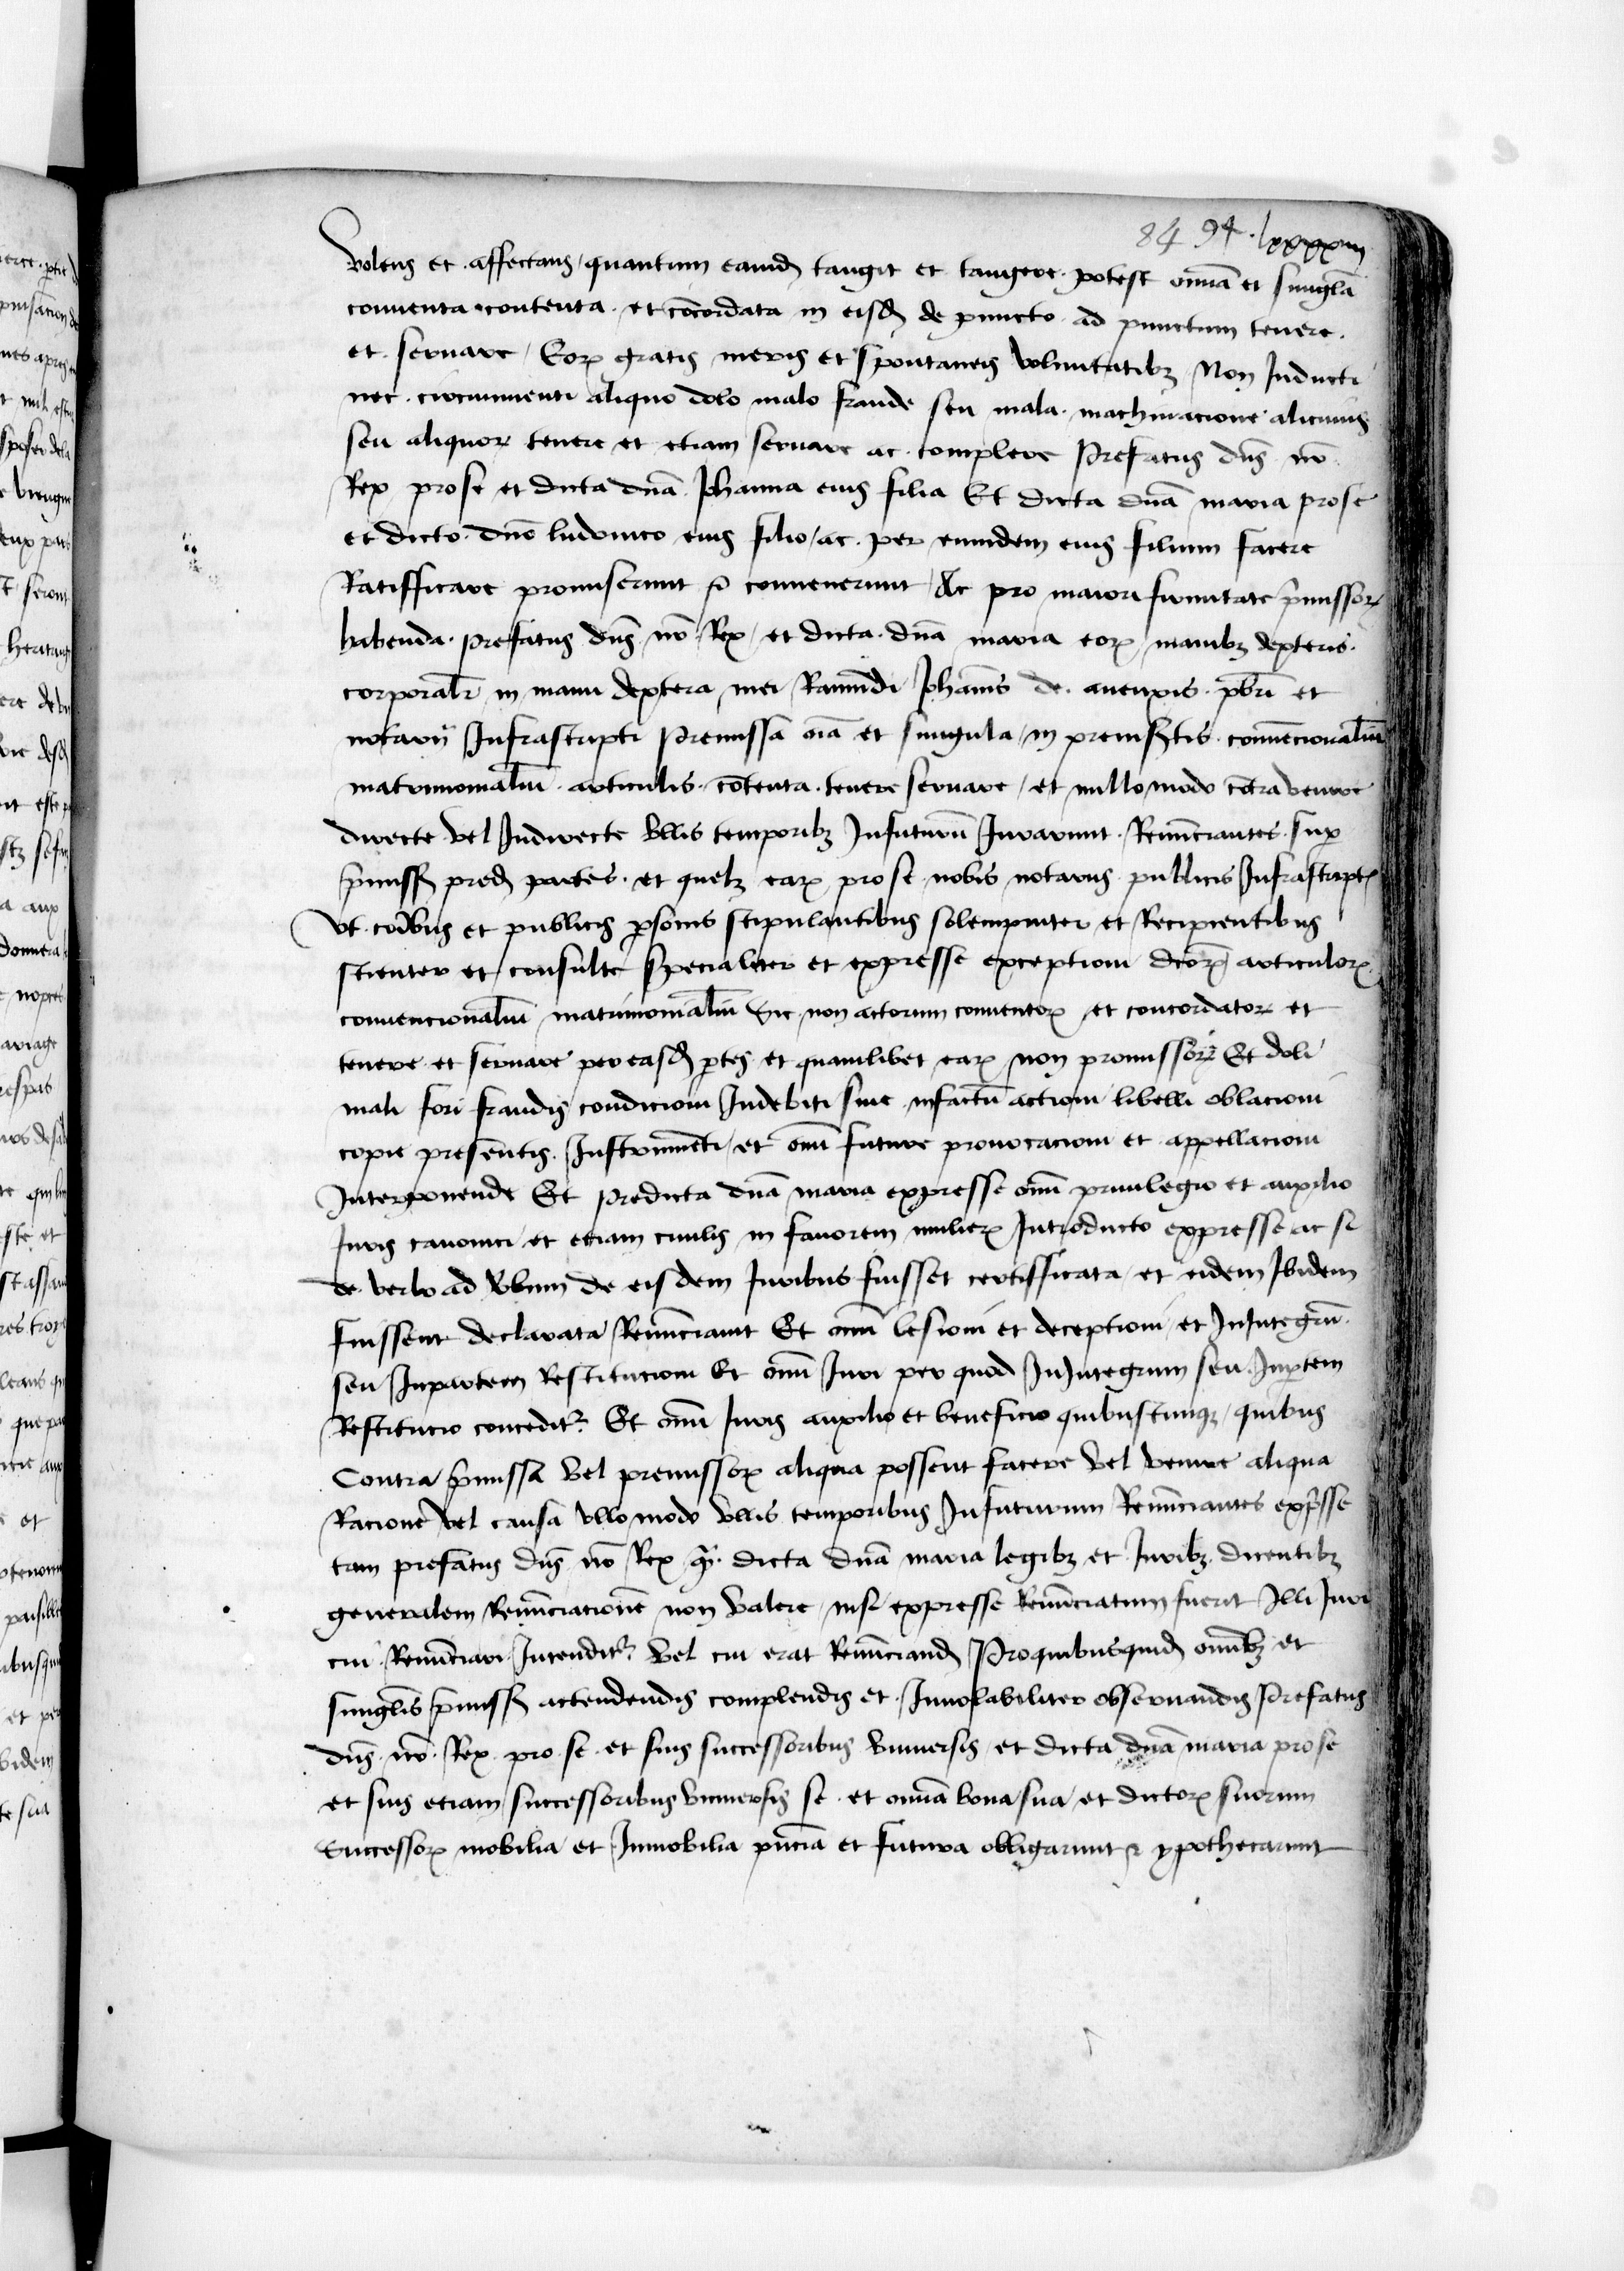 84 94 lxxxxiiii
Volens et affectans quantum eamd tangit et tangere potest omnia et singula
conventa contenta et concordata in eisd de puncto ad punctum tenere
et servare Eorꝝ gratis meris et spontaneis voluntatibꝫ Non Inducti
nec circumventi aliquo dolo malo fraude seu mala machinacione alicuius
seu aliquorꝝ tenere et etiam servare ac complere Prefatus dns nr
Rex pro se et dicta dna Johanna eius filia Et dicta dna maria pro se
et dicto dno ludovico eius filio ac per eumdem eius filium facere
Ratifficare promiserunt et convenerunt Ac pro maiori firmitate p̄missorꝝ
habenda prefatus dns nr Rex et dicta dna maria eorꝝ manibꝫ dexteris
corporalr in manu dextera mei Raimundi Johannis de pbri et
notarij Infrascripti Premissa oia et singula in preinsertis convencionaliū
matrimonialiū articulis cōtenta tenere servare et nullo modo cōtravenire
directe vel Indirecte ullis temporibꝫ Infuturū Iurarunt Renūciantes sup
p̄miss pred partes et quelꝫ earꝝ pro se nobis notariis publicis Infrascriptis
ut cōibus et publicis psonis stipulantibus solempniter et Recipientibus
scienter et consulte specialiter et expresse exceptioni dcorꝝ articulorꝝ
convencionaliū matrimonialiū sic non actorum conventorꝝ et concordatorꝝ et
tenere et servare per easd ptes et quamlibet earꝝ non promissorꝝ Et doli
mali fori fraudis condicioni Indebiti sine infactū actioni libelli oblacioni
copie presentis Instrumēti et omi future provocacioni et appellacioni
Interponende Et predicta dna maria expresse omi privilegio et auxilio
Iuris canonici et etiam civilis in favorem mulierꝝ Introducto expresse ac si
de verbo ad vbum de eisdem Iuribus fuisset certifficata et eidem Ibidem
fuissent declarata Renūciavit Et omi lesioni et deceptioni et InIntegrū
seu Inpartem Restitucioni Et omi Iuri per quod InIntegrum seu Inptem
Restitucio conceditr Et omi Iuris auxilio et beneficio quibuscunqꝫ quibus
Contra p̄missa vel premissorꝝ aliqua possent facere vel venire aliqua
Racione vel causa ullo modo ullis temporibus Infuturum Renūciantes exp̄sse
tam prefatus dns nr Rex qm dicta dna maria legibꝫ et Iuribꝫ dicentibꝫ
generalem Renūciacionē non valere nisi expresse Renūciatum fuerit Illi Iuri
cui Renūciari Intenditr vel cui erat Renūciand Proquibusquid omibꝫ et
singlis p̄miss attendendis complendis et Inviolabiliter observandis Prefatus
dns nr Rex pro se et suis successoribus universis et dicta dna maria pro se
et suis etiam successoribus universis se et omnia bona sua et dictorꝝ suorum
Successorꝝ mobilia et Inmobilia pncia et futura obligarunt et ypothecarunt